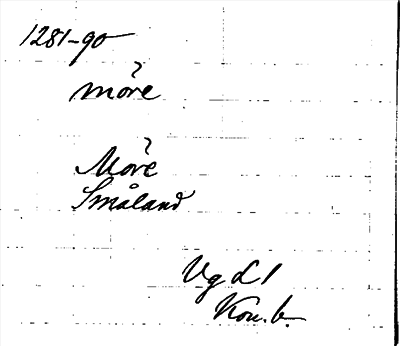 1281-90
möre
Möre
Småland
Vg L I
Kou.b.